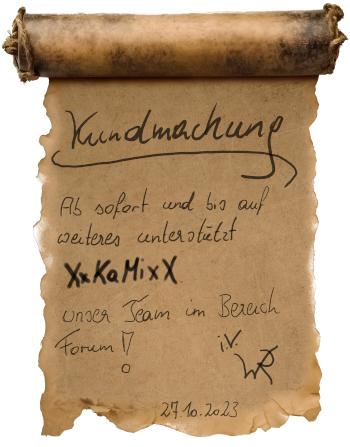 Kundmachung
Ab sofort und bis auf
weiteres unterstützt
XxKaMixX
unser Team im Bereich
Forum!
i.V.
WR
27.10.2023